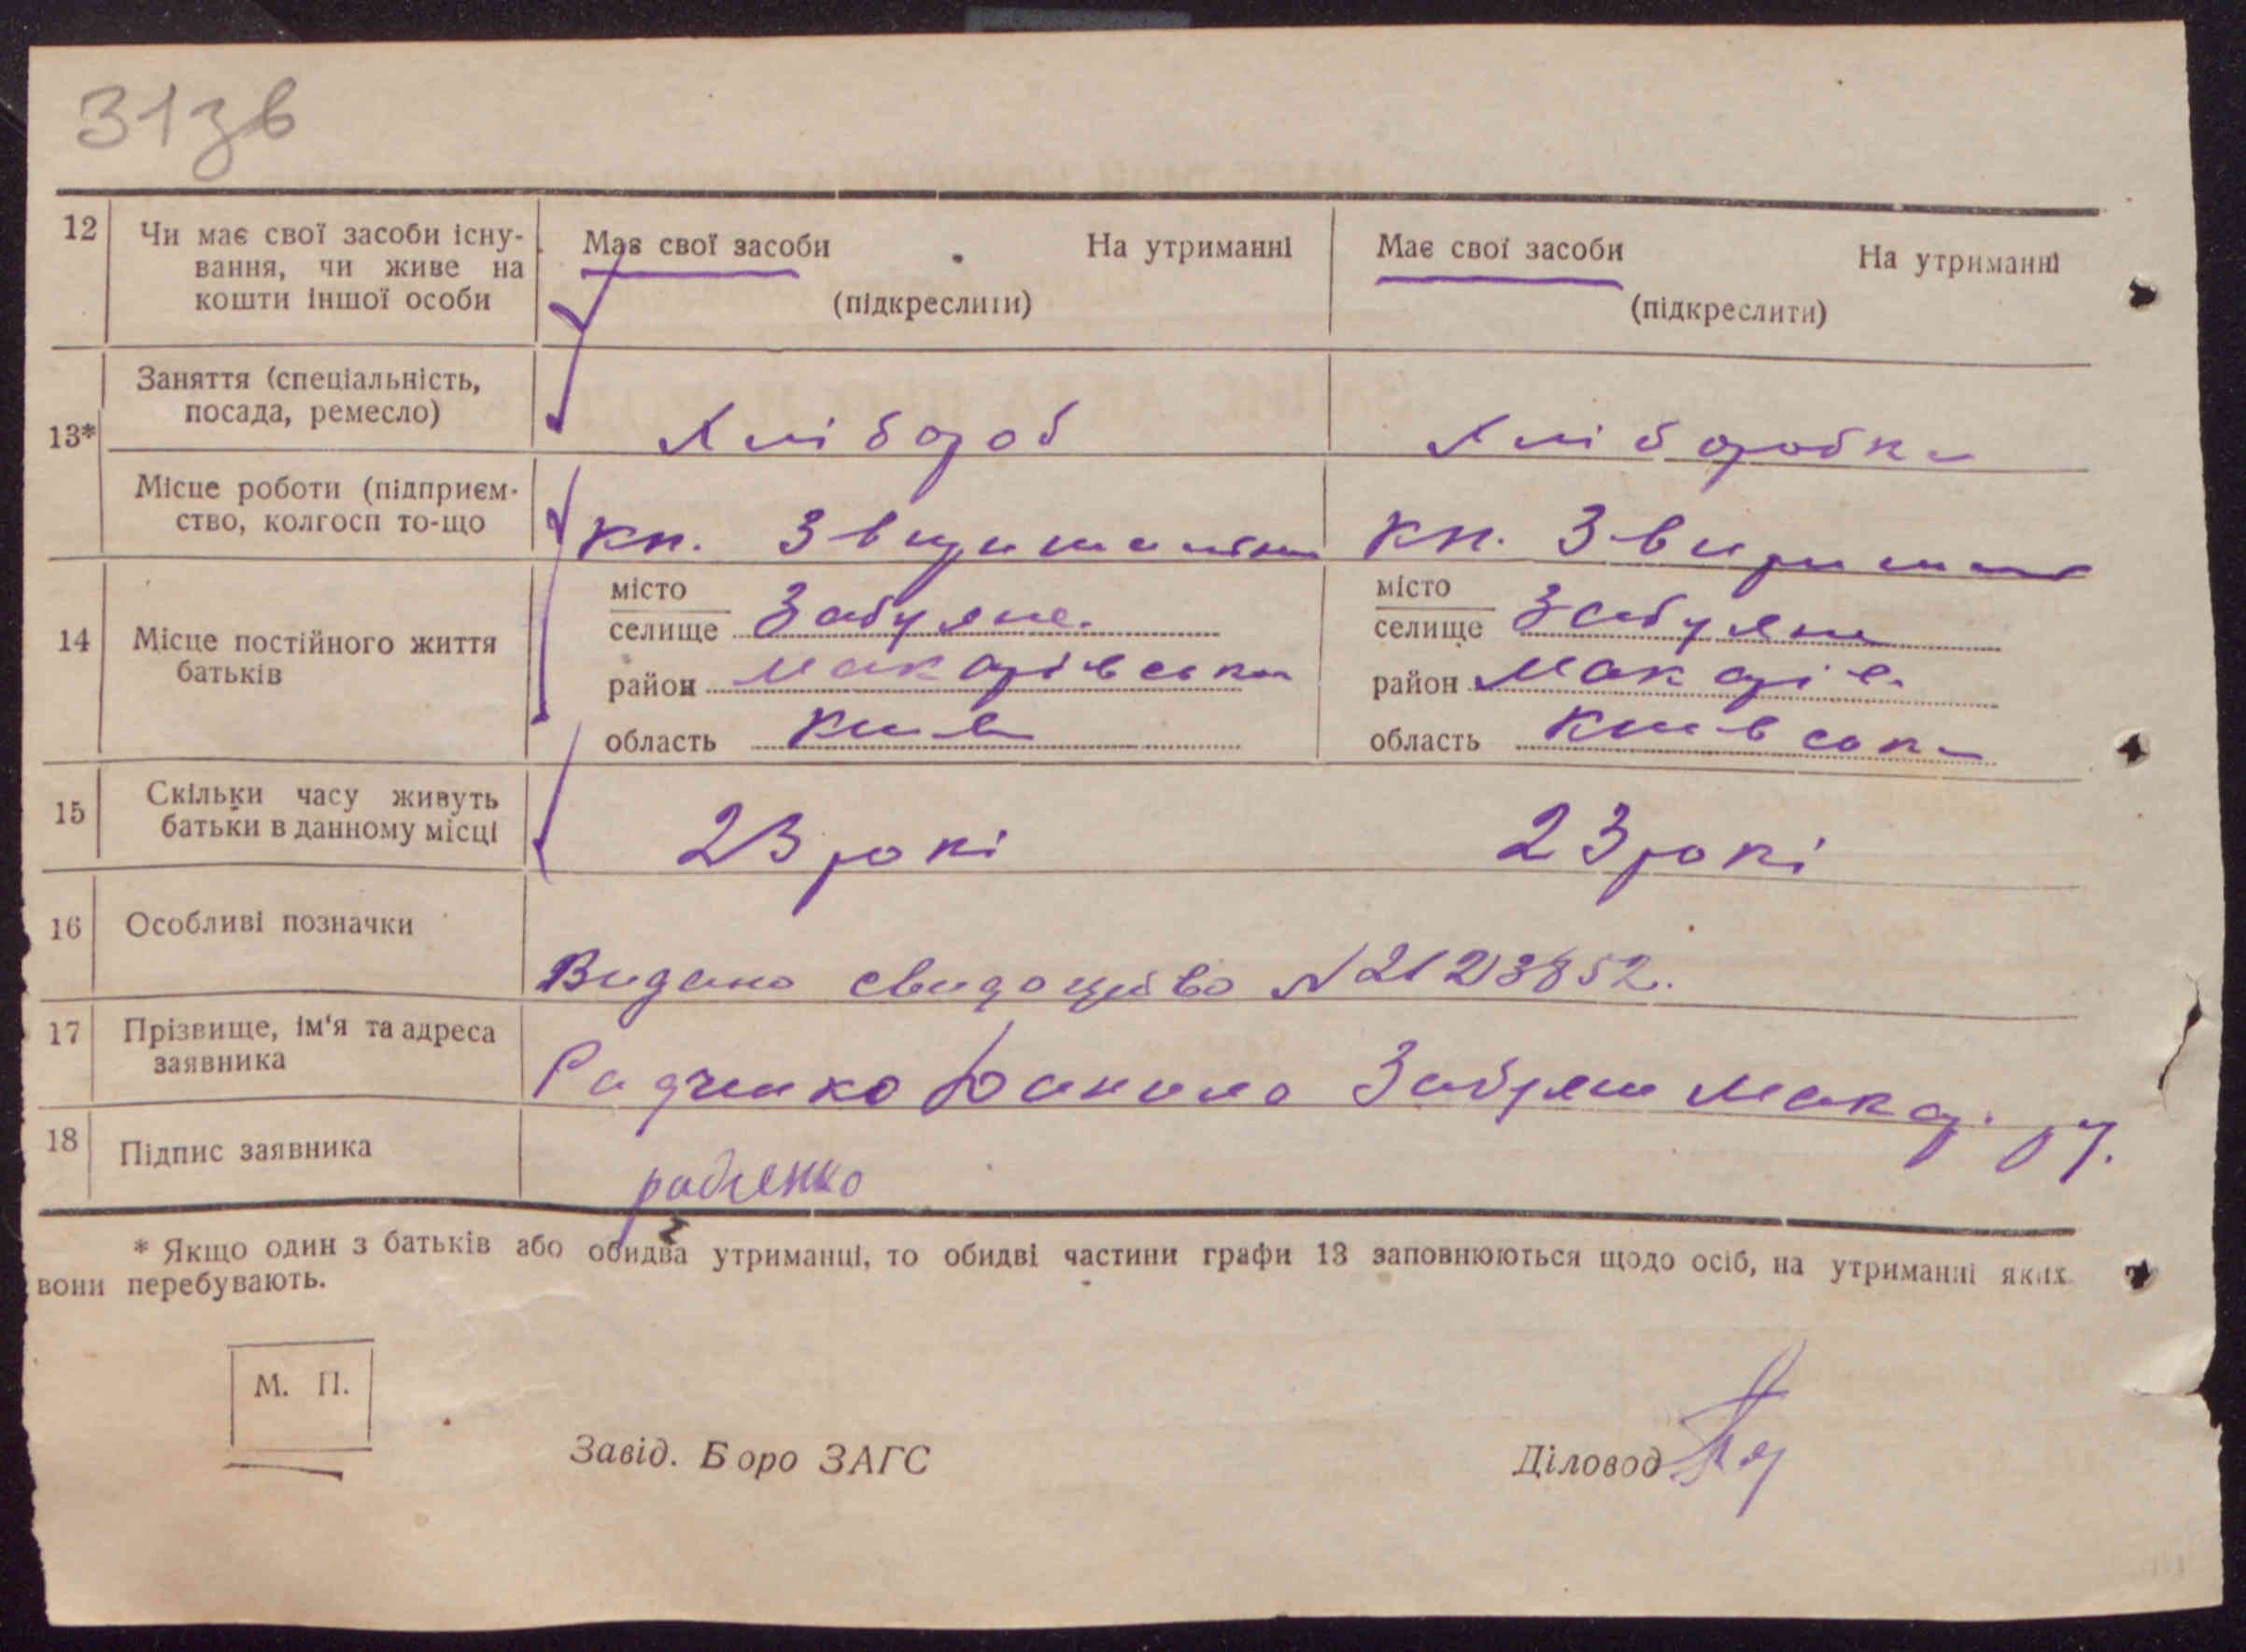 31зв
12 Чи має свої засоби існу- Має свої засоби На утриманні Має свої засоби На утриманні
вання, чи живе на
кошти іншої особи (підкреслити) (підкреслити)
Заняття (спеціальність,
посада, ремесло) Хлібороб Хліборобка
13*
Місце роботи (підприєм-
ство, колгосп то-що кп. кп.
14 Місце постійного життя
батьків
місто місто
селище Забуяне селище Забуяне
район Макарівська район Макарів.
область Київ область Київська
15 Скільки часу живуть
батьки в данному місці 23 рокі 23 рокі
16 Особливі позначки
Видано свидоцтво N 2123852.
17 Прізвище, ім'я та адреса
заявника Радченко Данило Забуян Макар. р.
18 Підпис заявника
радченко
* Якщо один з батьків або обидва утриманці, то обидві частини графи 13 заповнюються щодо осіб, на утриманні яких
вони перебувають.
М. П.
Завід. Бюро ЗАГС Діловод